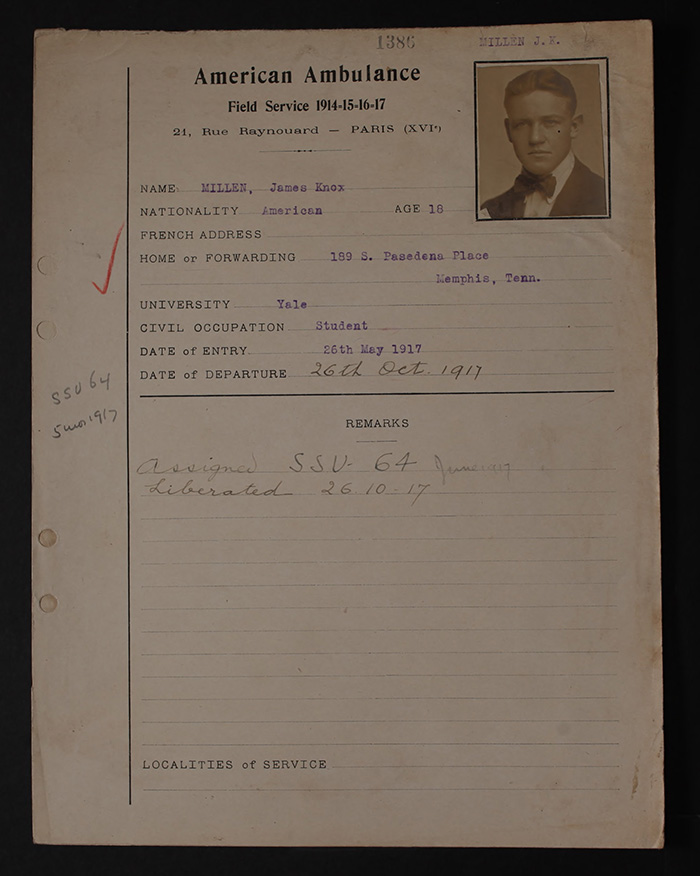 1386
MILLEN J. K.
American Ambulance
Field Service 1914-15-16-17
21, Rue Raynouard — PARIS (XVIᵉ)
NAME: MILLEN, James Knox
NATIONALITY American AGE 18
FRENCH ADDRESS
HOME or FORWARDING 189 S. Pasedena Place
Memphis, Tenn.
UNIVERSITY Yale
CIVIL OCCUPATION Student
DATE of ENTRY 26th May 1917
DATE of DEPARTURE 26th Oct. 1917
SSU 64
5 mos 1917
REMARKS
Assigned SSU- 64 June 1917
Liberated 26.10-17
LOCALITIES of SERVICE